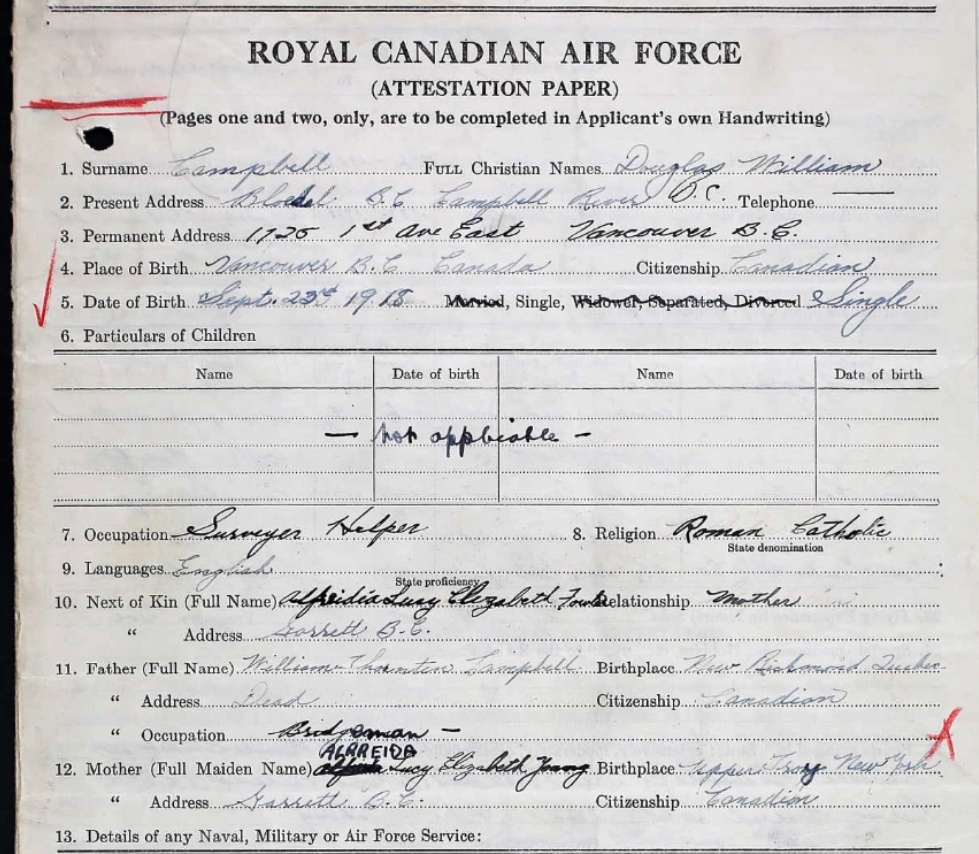 ROYAL CANADIAN AIR FORCE
(ATTESTATION PAPER)
(Pages one and two, only, are to be completed in Applicant's own Handwriting)
1. Surname Campbell FULL Christian Names Douglas William
2. Present Address Bloedel B.C Campbell River B.C. Telephone
3. Permanent Address 1st Ave East Vancouver B.C.
4. Place of Birth Vancouver B.C Canada Citizenship Canadian
5. Date of Birth Sept. 23rd 1918 Married, Single, Widower, Separated, Divorced Single
6. Particulars of Children
Name Date of birth Name Date of birth
— not appliable —
7. Occupation Surveyer Helper 8. Religion Roman Catholic
State denomination
9. Languages English
State proficiency
10. Next of Kin (Full Name) Lucy Elizabeth Relationship Mother
" Address B.C.
11. Father (Full Name) William Thornton Campbell Birthplace New Richmond Quebec
" Address Dead Citizenship Canadian
" Occupation Bridgeman —
ALRREIDA
12. Mother (Full Maiden Name) Lucy Elizabeth Young Birthplace Upper Troy New York
" Address Garrett B.C. Citizenship Canadian
13. Details of any Naval, Military or Air Force Service: